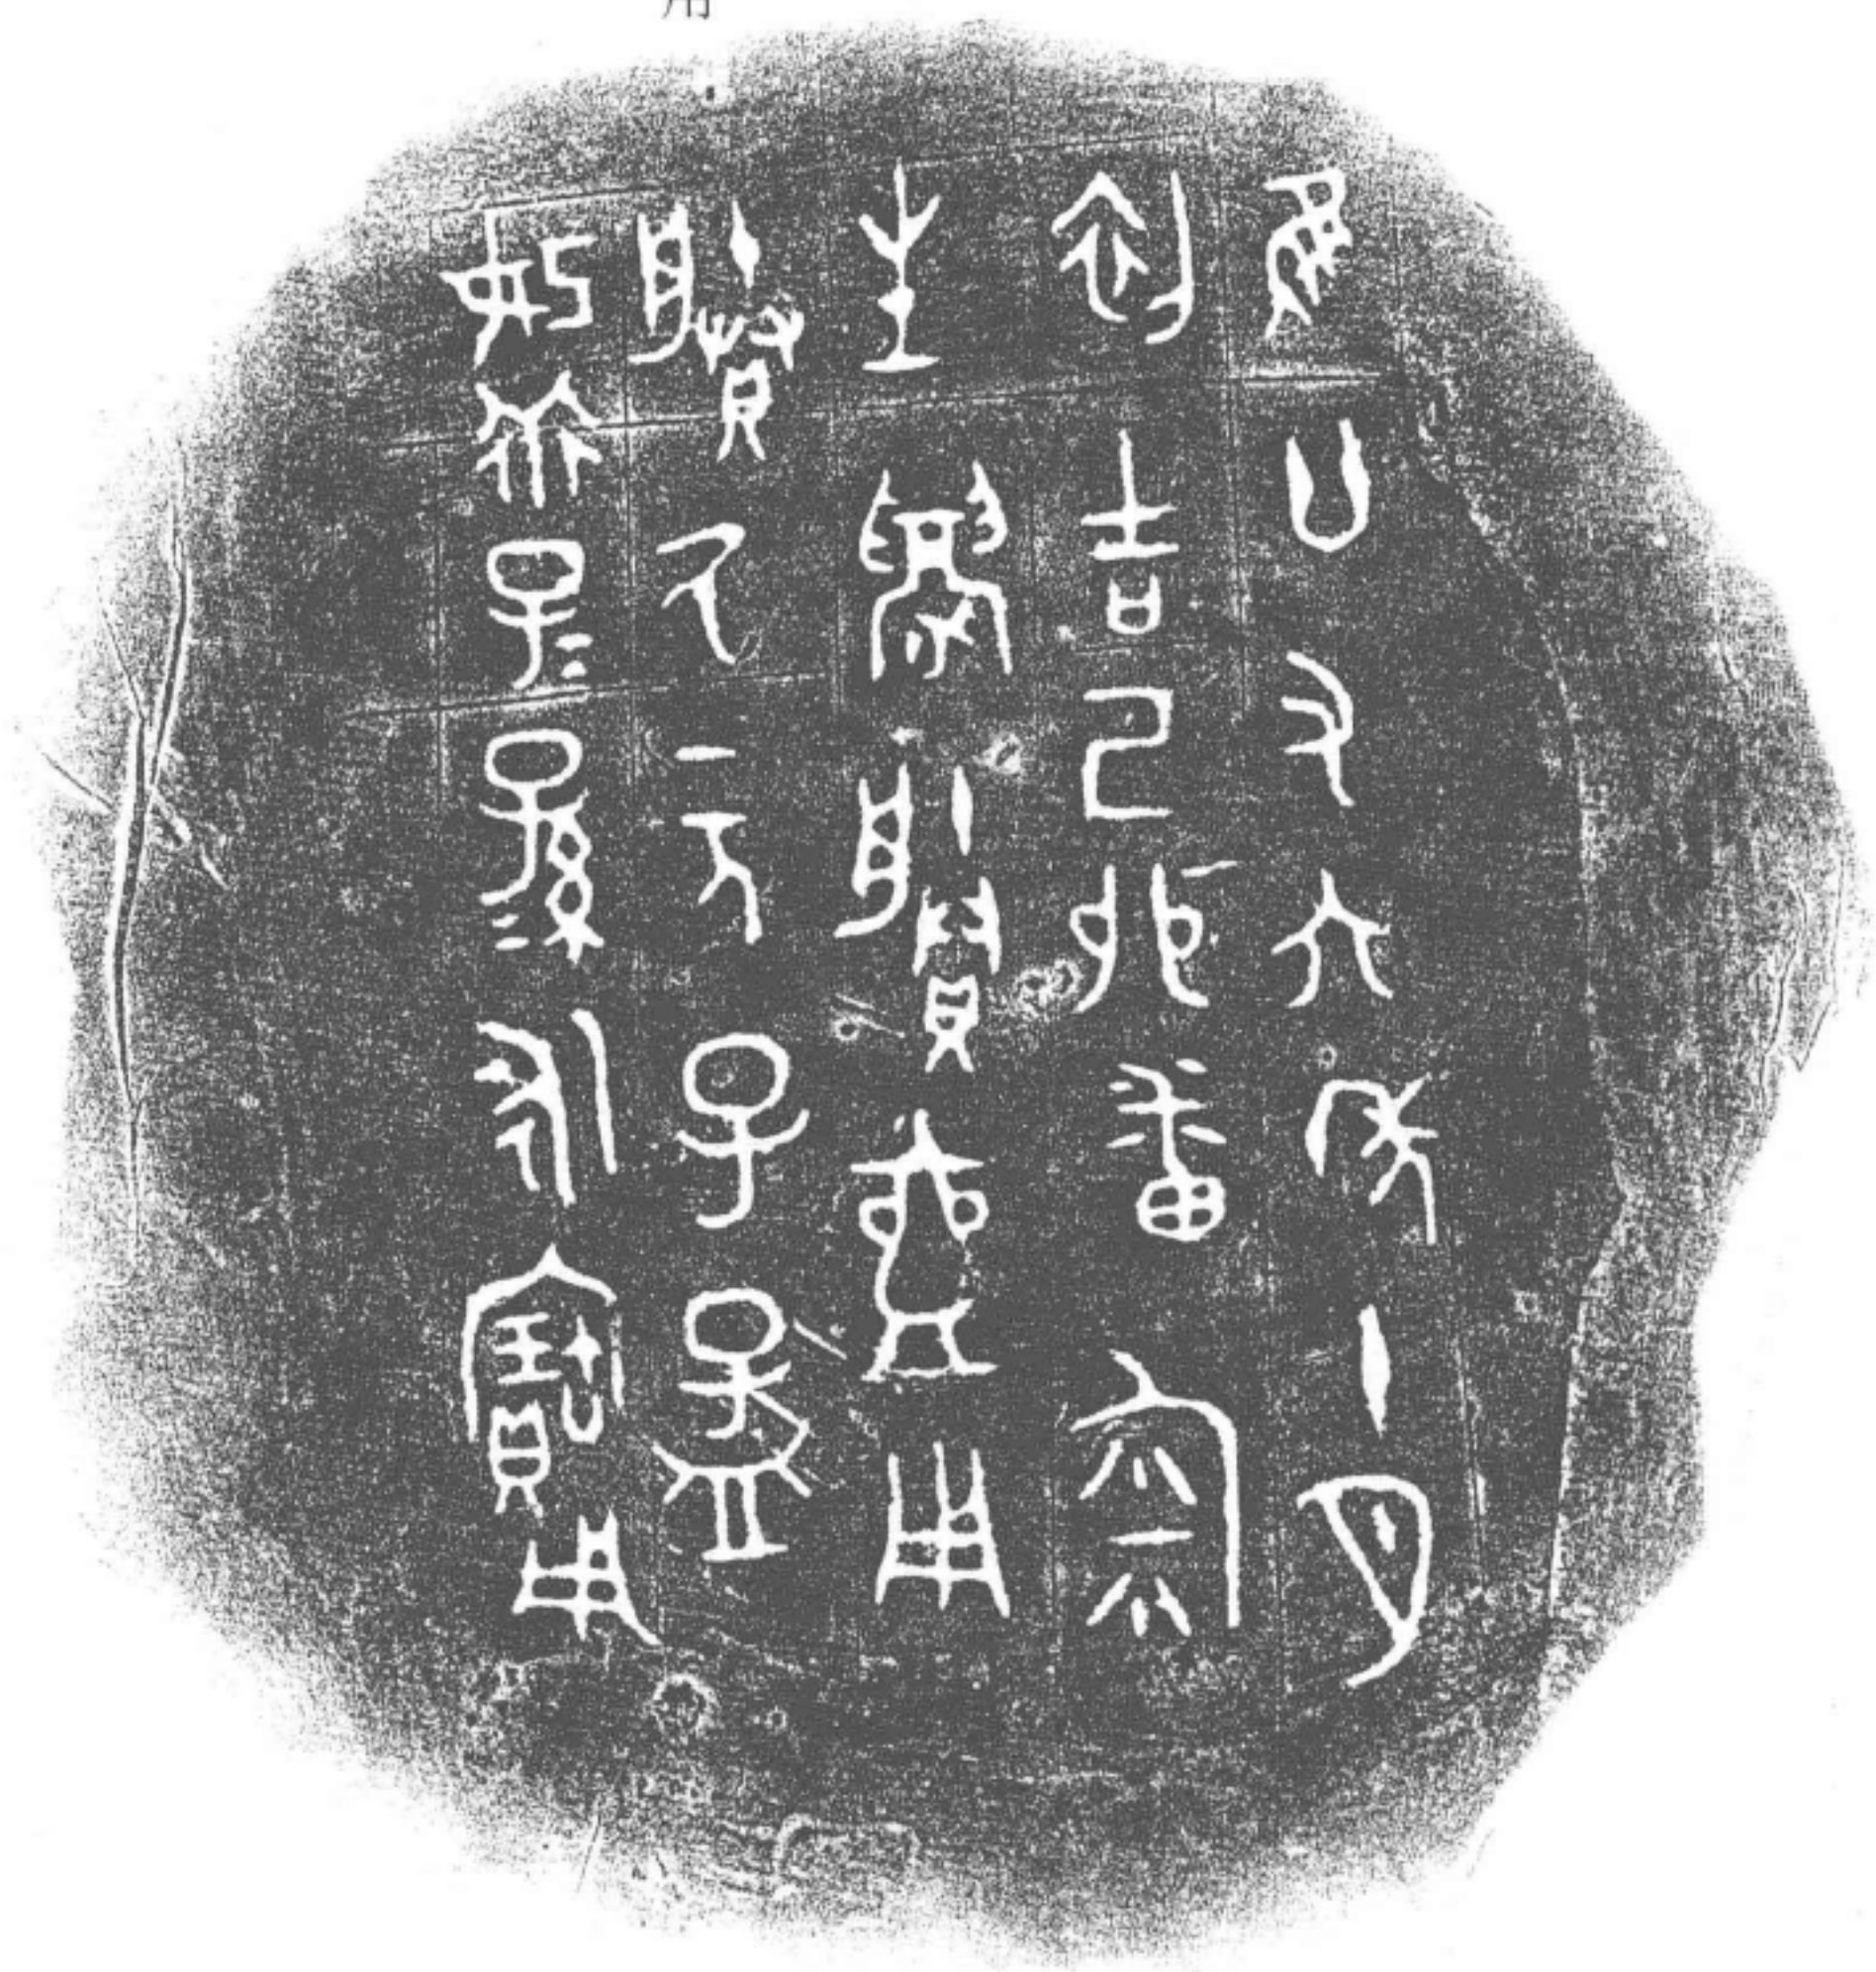 用
隹廿又六年十月
初吉己卯番匊
生鑄賸壺用
賸氒元子孟
妃乖子=孫=永寶用